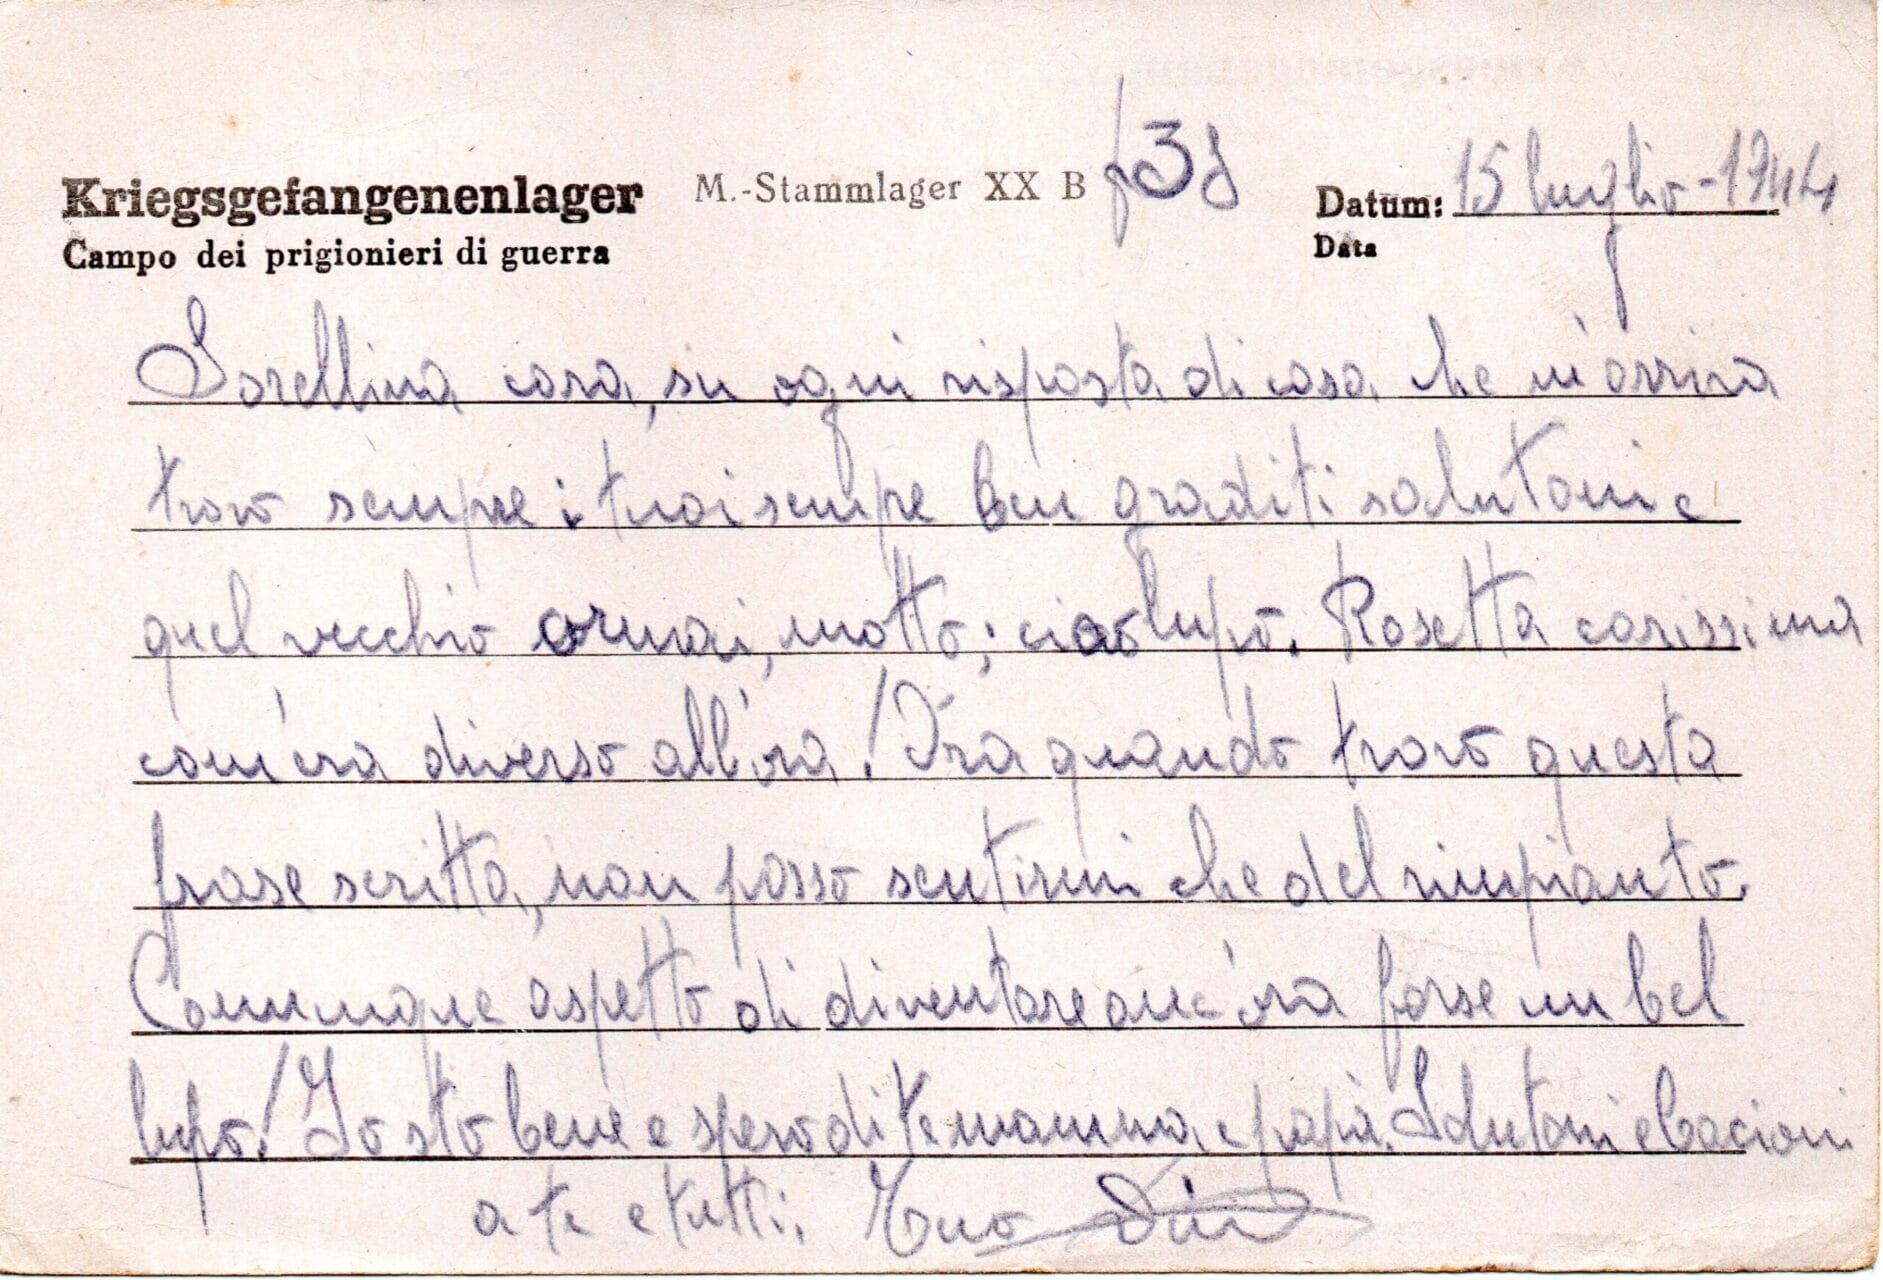 Kriegsgefangenenlager M.-Stammlager XX B Datum: 15 luglio - 1944
Campo dei prigionieri di guerra Data
Sorellina cara, su ogni risposta di casa che m'arriva
trovo sempre i tuoi sempre ben graditi salutoni e
quel vecchio ormai, motto; ciao lupo. Rosetta carissima
com'era diverso all'ora! Ora quando trovo questa
frase scritta, non posso sentirmi che del rimpianto.
Comunque aspetto di diventare anc'ora forse un bel
lupo! Io sto bene e spero di te mamma e papà. Salutoni e bacioni
a te e tutti. Tuo